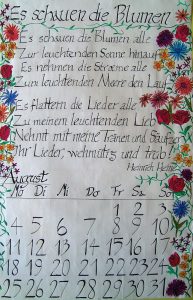 Es schauen die Blumen
Es schauen die Blumen alle
Zur leuchtenden Sonne hinauf
Es nehmen die Ströme alle
Zum leuchtenden Meere den Lauf
Es flattern die Lieder alle
Zu meinem leuchtenden Lieb
Nehmt mit meine Tränen und Seufzer
Ihr Lieder, wehmütig und trüb!
Heinrich Heine
August
Mo Di Mi Do Fr Sa So
1 2 3
4 5 6 7 8 9 10
11 12 13 14 15 16 17
18 19 20 21 22 23 24
25 26 27 28 29 30 31